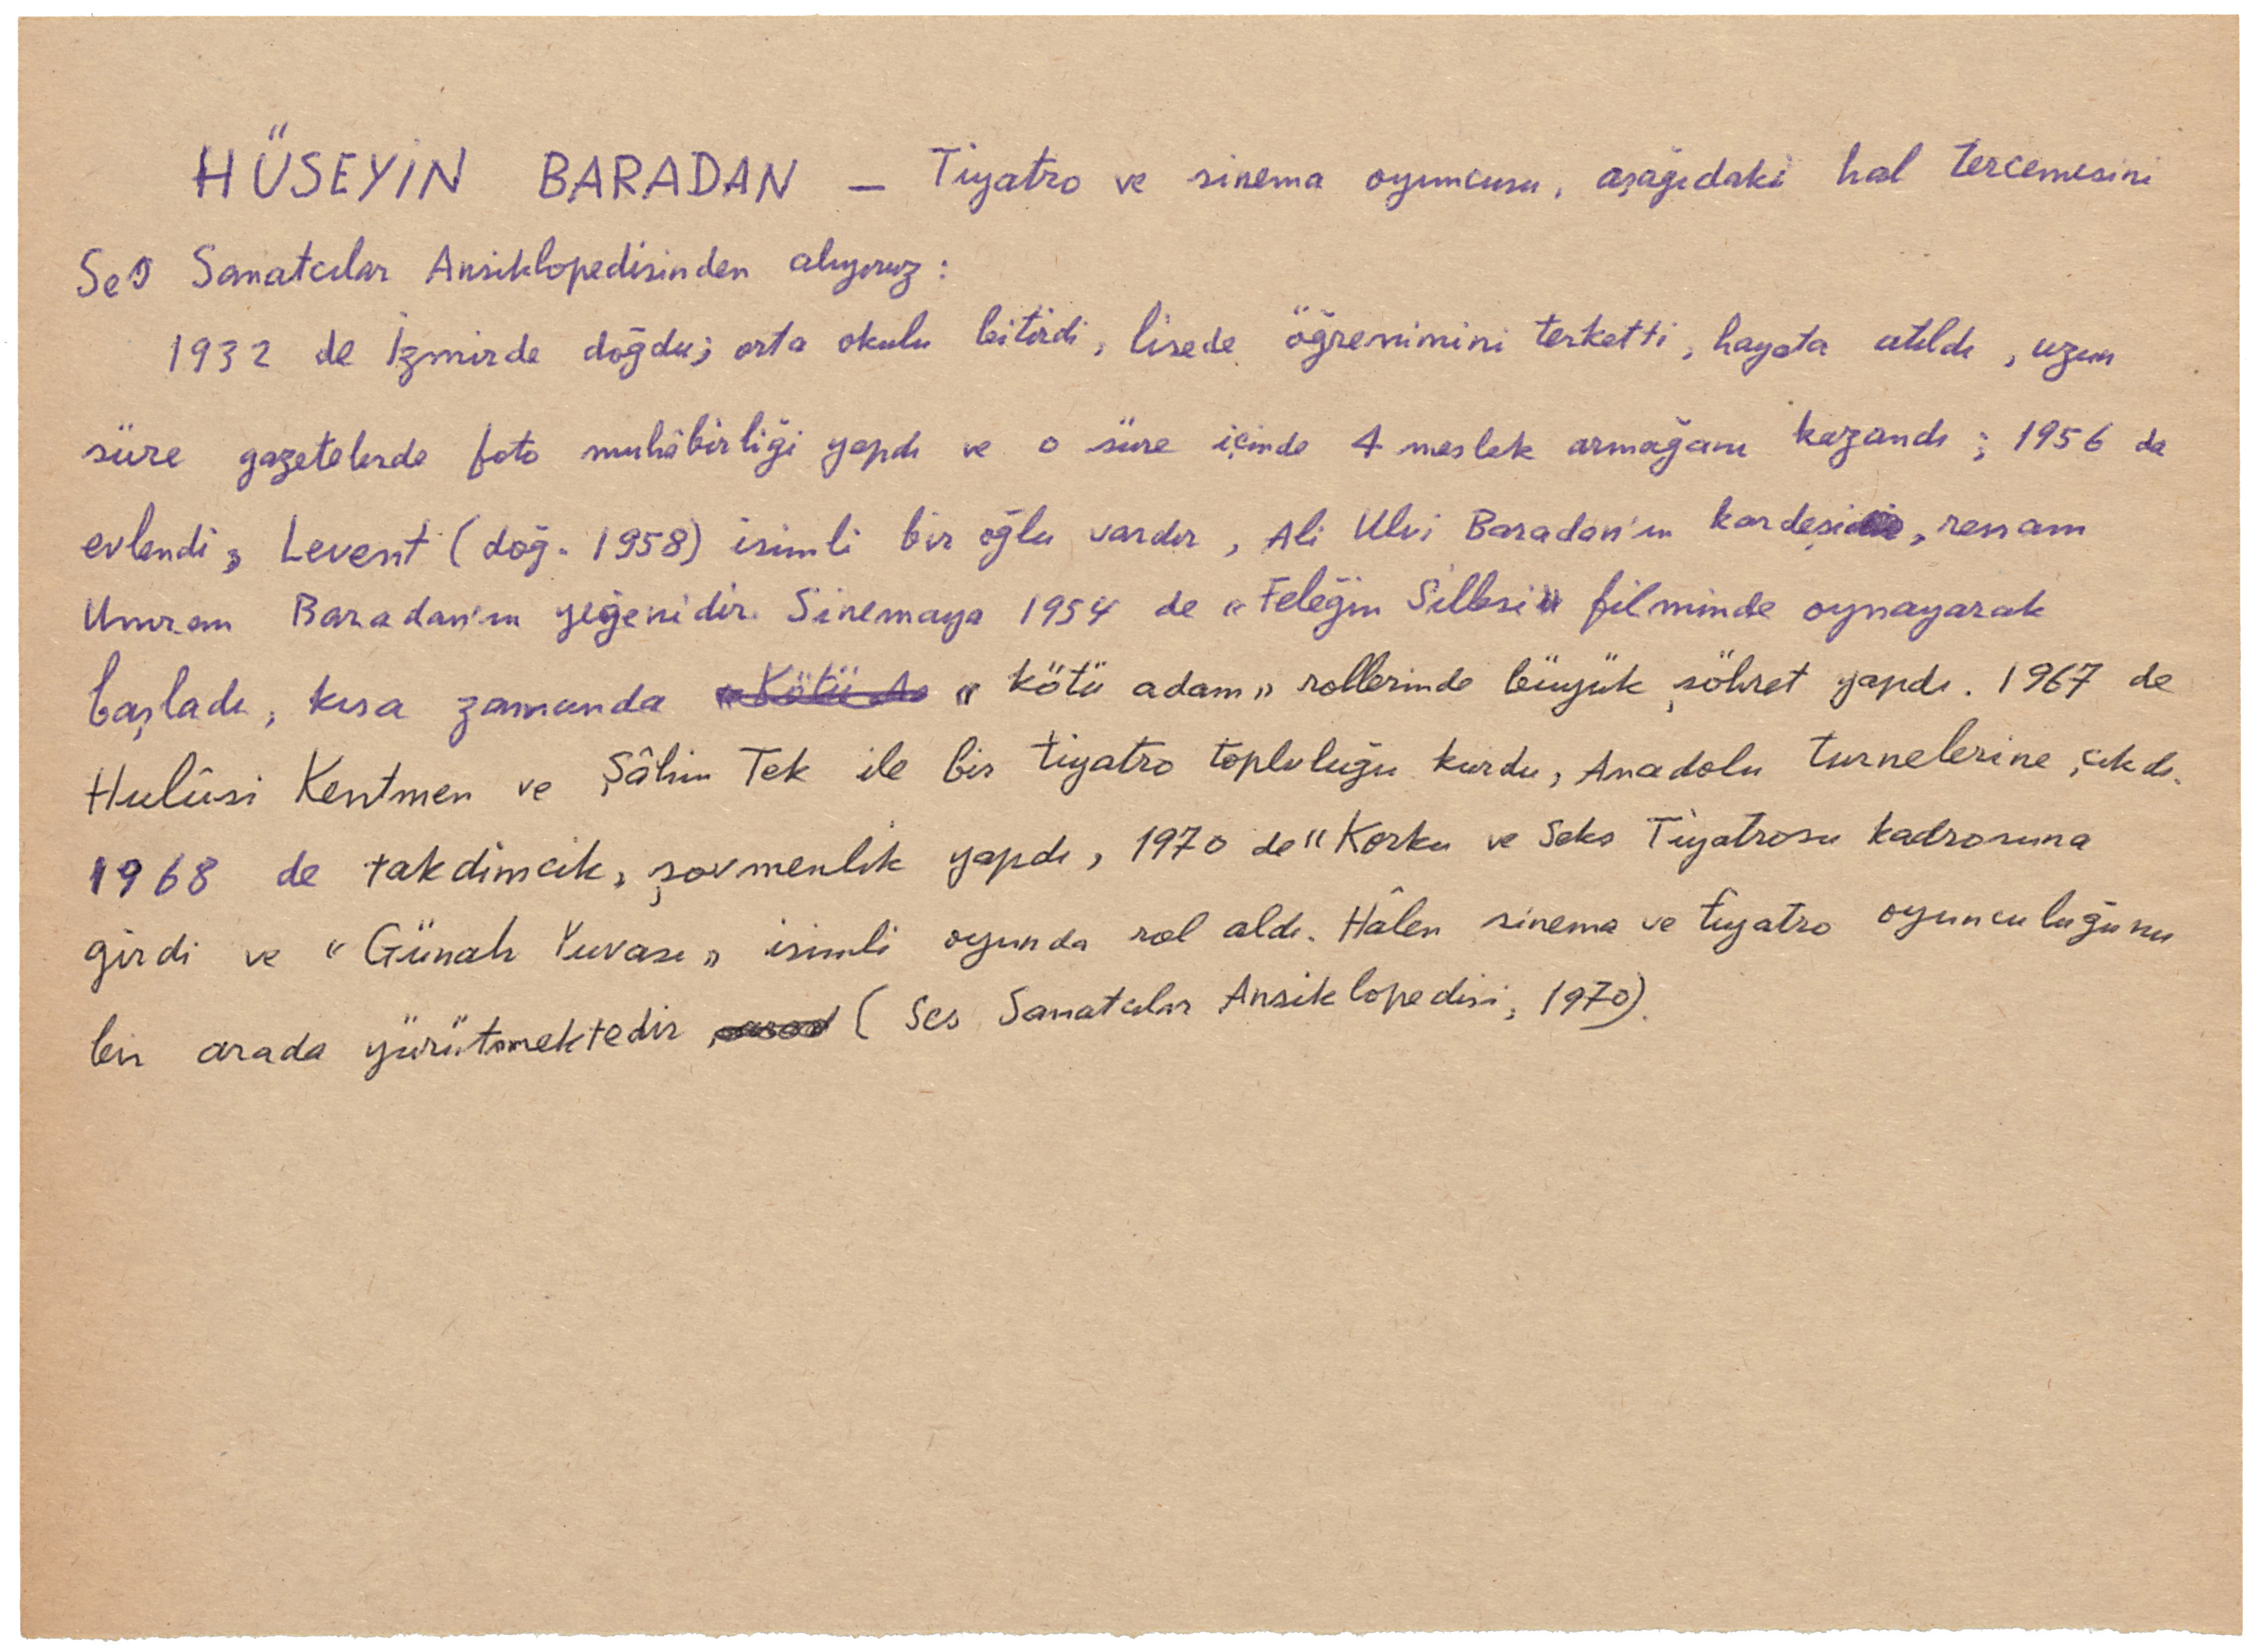 HÜSEYİN BARADAN — Tiyatro ve sinema oyuncusu, aşağıdaki hal tercemesini
Ses Sanatcılar Ansiklopedisinden alıyoruz:
1932 de İzmirde doğdu; orta okulu bitirdi, lisede öğrenimini terketti, hayata atıldı, uzun
süre gazetelerde foto muhâbirliği yapdı ve o süre içinde 4 meslek armağanı kazandı; 1956 da
evlendi, Levent (doğ. 1958) isimli bir oğlu vardır, Ali Ulvi Baradan'ın kardeşi, ressam
Umran Baradan'ın yeğenidir. Sinemaya 1954 de «Feleğin Sillesi» filminde oynayarak
başladı, kısa zamanda «Kötü A «kötü adam» rollerinde büyük şöhret yapdı. 1967 de
Hulûsi Kentmen ve Şâhin Tek ile bir tiyatro topluluğu kurdu, Anadolu turnelerine çıkdı.
1968 de takdimcik, şovmenlik yapdı, 1970 de "Korku ve Seks Tiyatrosu kadrosuna
girdi ve «Günah Yuvası» isimli oyunda rol aldı. Hâlen sinema ve tiyatro oyunculuğunu
bir arada yürütmektedir (Ses Sanatcılar Ansiklopedisi, 1970).